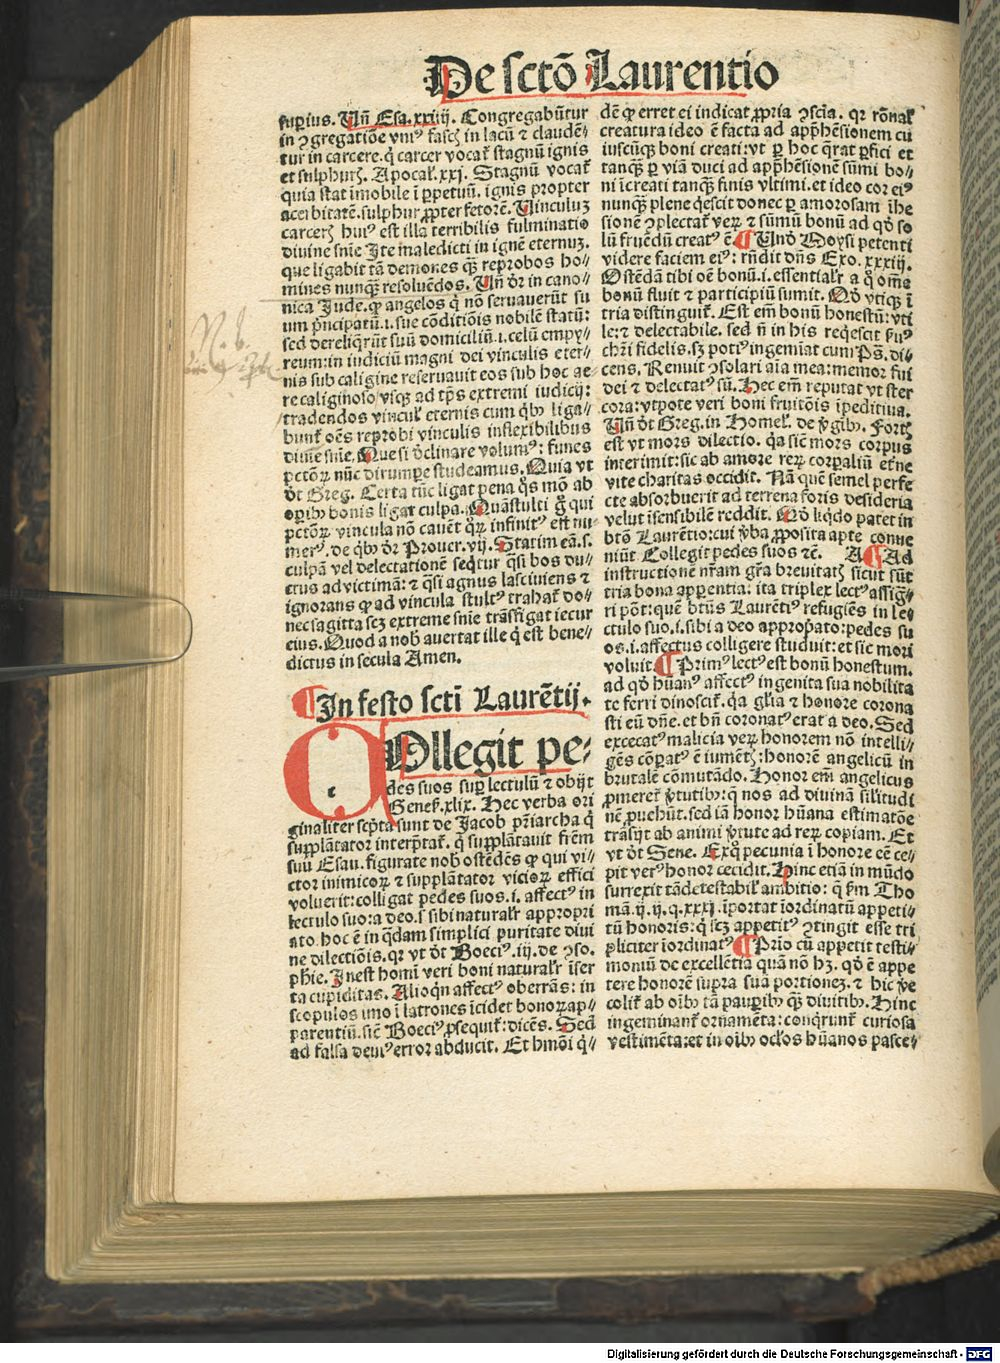 De sctō Laurentio
superius. Uñ Esa. xxiiij. Congregabūtur
in ꝯgregatiōe vniꝰ fascꝭ in lacū ⁊ claudē⸗
tur in carcere. q̇ carcer vocaꝉ stagnū ignis
et sulphurꝭ. Apocal. xxj. Stagnū vocaꝉ
quia stat īmobile ī ꝑpetuū. ignis propter
acerbitatē. sulphur ꝓpter fetorē. Uinculuꝫ
carcerꝭ huiꝰ est illa terribilis fulminatio
diuine snīe. Ite maledicti in ignē eternuꝫ.
que ligabit tā demones qꝫ̄ reprobos ho⸗
mines nunqꝫ̄ resoluēdos. Uñ dr̄ in cano⸗
nica Jude. ꝙ angelos q̇ nō seruauerūt su
um pͥncipatū .i. sue cōditiōis nobilē statū:
sed dereliq̄rūt suū domiciliū .i. celū empy⸗
reum: in iudiciū magni dei vinculis eter⸗
nis sub caligine reseruauit eos sub hoc ae⸗
re caliginoso vsqꝫ ad tp̄s extremi iudicij:
tradendos vinculꝭ eternis cum qͥbꝫ liga⸗
bunꝉ oēs reprobi vinculis inflexibilibus
diuīe snīe. Que si ꝺclinare volumꝰ: funes
pctōꝝ nūc dirumpe studeamus. Quia vt
dt̄ Greg. Certa tūc ligat pena q̊s mō ab
oꝑibꝫ bonis ligat culpa. Quā stulti g̊ qui
pctōꝝ vincula nō cauēt qͦꝝ infinitꝰ est nu⸗
merꝰ. de qͥbꝫ dr̄ Prouer. vij. Statim eā .s.
culpā vel delectationē seqͥtur q̄si bos du⸗
ctus ad victimā: ⁊ q̄si agnus lasciuiens ⁊
ignorans ꝙ ad vincula stultꝰ trahaꝉ do⸗
nec sagitta scꝫ extreme snīe trāsfigat iecur
eius. Quod a nob̄ auertat ille q̇ est bene⸗
dictus in secula Amen.
In festo scti Laurētij.
COllegit pe⸗
des suos suꝑ lectulū ⁊ obijt
Geneẜ. xlix. Hec verba ori
ginaliter scp̄ta sunt de Jacob pr̄iarcha q̇
supplātator interp̄taꝉ. q̇ supplātauit fr̄em
suū Esau. figurate nob̄ ostēdēs ꝙ qui vi⸗
ctor inimicoꝝ ⁊ supplātator vicioꝝ effici
voluerit: colligat pedes suos .i. affectꝰ in
lectulo suo: a deo .s. sibi naturalr̄ appropri
ato. hoc ē in q̄dam simplici puritate diui
ne dilectiōis. qꝛ vt dt̄ Boeciꝰ. iij. de ꝯso.
phie. Inest homī veri boni naturalr̄ īser
ta cupiditas. Alioq̇n affectꝰ oberrās: in
scopulos imo ī latrones īcidet bonoꝝ ap⸗
parentiū. sic̄ Boeciꝰ ꝓsequiꝉ: dicēs. Sed
ad falsa deuiꝰ error abducit. Et hmōi q̇⸗
dē ꝙ erret ei indicat ꝓpria ꝯscīa. qꝛ rōnaꝉ
creatura ideo ē facta ad appͣhēsionem cu
iuscūqꝫ boni creati: vt ꝑ hoc q̄rat ꝑfici et
tanqꝫ̄ ꝑ viā duci ad appͣhēsionē sūmi bo⸗
ni īcreati tanqꝫ̄ finis vltimi. et ideo cor eiꝰ
nunqꝫ̄ plene q̇escit donec ꝑ amorosam īhe
sionē ꝯplectaꝉ veꝝ ⁊ sūmū bonū ad qd̄ so
lū fruēdū creatꝰ ē. ¶ Uñ Moysi petenti
videre faciem eiꝰ: rn̄dit dn̄s Exo. xxxiij.
Ostēdā tibi oē bonū .i. essentialr̄ a q̊ om̄e
bonū fluit ⁊ participiū sumit. Qd̄ vtiqꝫ ī
tria distinguiꝉ. Est em̄ bonū honestū: vti
le: ⁊ delectabile. sed n̄ in his req̇escit ẜuꝰ
chr̄i fidelis. sꝫ potiꝰ ingemīat cum Pš. di⸗
cens. Renuit ꝯsolari aīa mea: memor fui
dei ⁊ delectatꝰ sū. Hec em̄ reputat vt ster
cora: vtpote veri boni fruitōis īpeditiua.
Uñ dt̄ Greg. in Homeꝉ. de ꝟgībꝫ. Fortꝭ
est vt mors dilectio. q̇a sic̄ mors corpus
interimit: sic ab amore reꝝ corꝑaliū et̄ne
vite charitas occidit. Nā quē semel perfe
cte absorbuerit ad terrena foris desideria
velut īsensibilē reddit. Qd̄ liq̇do patet in
btō Laurētio: cui ꝟba ꝓposita apte conue
niūt Collegit pedes suos ⁊c̄. A ¶ Ad
instructionē nr̄am gr̄a breuitatꝭ sicut sūt
tria bona apparentia: ita triplex lectꝰ assig̃
ri pōt: quē btūs Laurētiꝰ refugiēs in le⸗
ctulo suo .i. sibi a deo approp̄ato: pedes su
os .i. affectus colligere studuit: et sic mori
voluit. ¶ Primꝰ lectꝰ est bonū honestum.
ad qd̄ hūanꝰ affectꝰ ingenita sua nobilita
te ferri dinosciꝉ. q̇a gl̄ia ⁊ honore corona
sti eū dn̄e. et bn̄ coronatꝰ erat a deo. Sed
excecatꝰ malicia veꝝ honorem nō intelli⸗
gēs cōꝑatꝰ ē iumētꝭ: honorē angelicū in
brutalē cōmutādo. Honor em̄ angelicus
ꝓmereꝉ ꝟtutibꝫ: q̇ nos ad diuinā silītudi
nē ꝓuehūt. sed iā honor hūana estimatōe
trāsijt ab animi ꝟtute ad reꝝ copiam. Et
vt dt̄ Sene. Ex q̊ pecunia ī honore cē ce⸗
pit verꝰ honor cecidit. Hinc etiā in mūdo
surrexit tā detestabilꝭ ambitio: q̄ ẜm Tho
mā. ij. ij. q. xxxj. īportat īordinatū appeti⸗
tū honoris: q̇ scꝫ appetitꝰ ꝯtingit esse tri
pliciter īordinatꝰ ¶ Prīo cū appetit testi⸗
moniū de excellētia quā nō hꝫ. qd̄ ē appe
tere honorē supra suā portionez. ⁊ hic ꝟe
coliꝉ ab oībꝫ tā pauꝑibꝫ qꝫ̄ diuitibꝫ. Hinc
ingeminanꝉ ornamēta: conq̇runꝉ curiosa
vestimēta: et in oībꝫ oclos hūanos pasce⸗
Digitalisierung gefördert durch die Deutsche Forschungsgemeinschaft - DFG